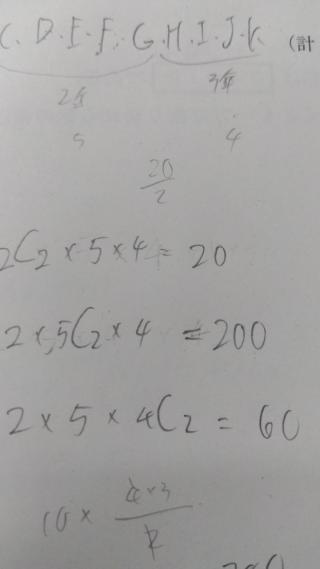 C. D. E. F. G. H. I. J. K (計
2年 3年
5 4
20/2
2C2 × 5 × 4 = 20
2 × 5C2 × 4 = 200
2 × 5 × 4C2 = 60
10 × 4×3/2